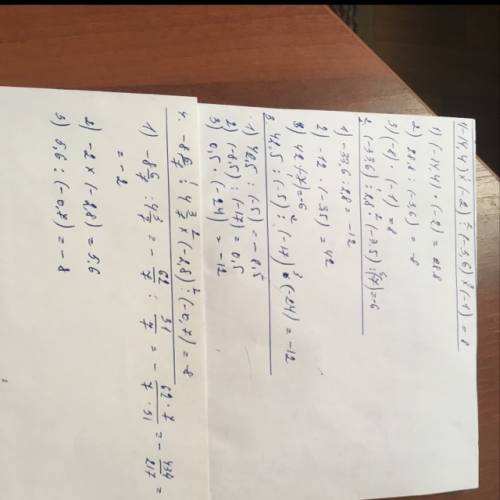 1. (-14,4) × (-2) : (-3,6) × (-1) = 8
1) (-14,4) · (-2) = 28,8
2) 28,8 : (-3,6) = -8
3) (-8) · (-1) = 8
2. (-33,6) : 2,8 × (-3,5) : (-7) = -6
1) -33,6 : 2,8 = -12
2) -12 · (-3,5) = 42
3) 42 : (-7) = -6
3. 42,5 : (-5) : (-17) × (-24) = -12
1) 42,5 : (-5) = -8,5
2) (-8,5) : (-17) = 0,5
3) 0,5 · (-24) = -12
4. -8 6/7 : 4 3/7 × (-2,8) : (-0,7) = -8
1) -8 6/7 : 4 3/7 = - 62/7 : 31/7 = - 62 · 7/7 · 31 = - 434/217 =
= -2
2) -2 × (-2,8) = 5,6
3) 5,6 : (-0,7) = -8